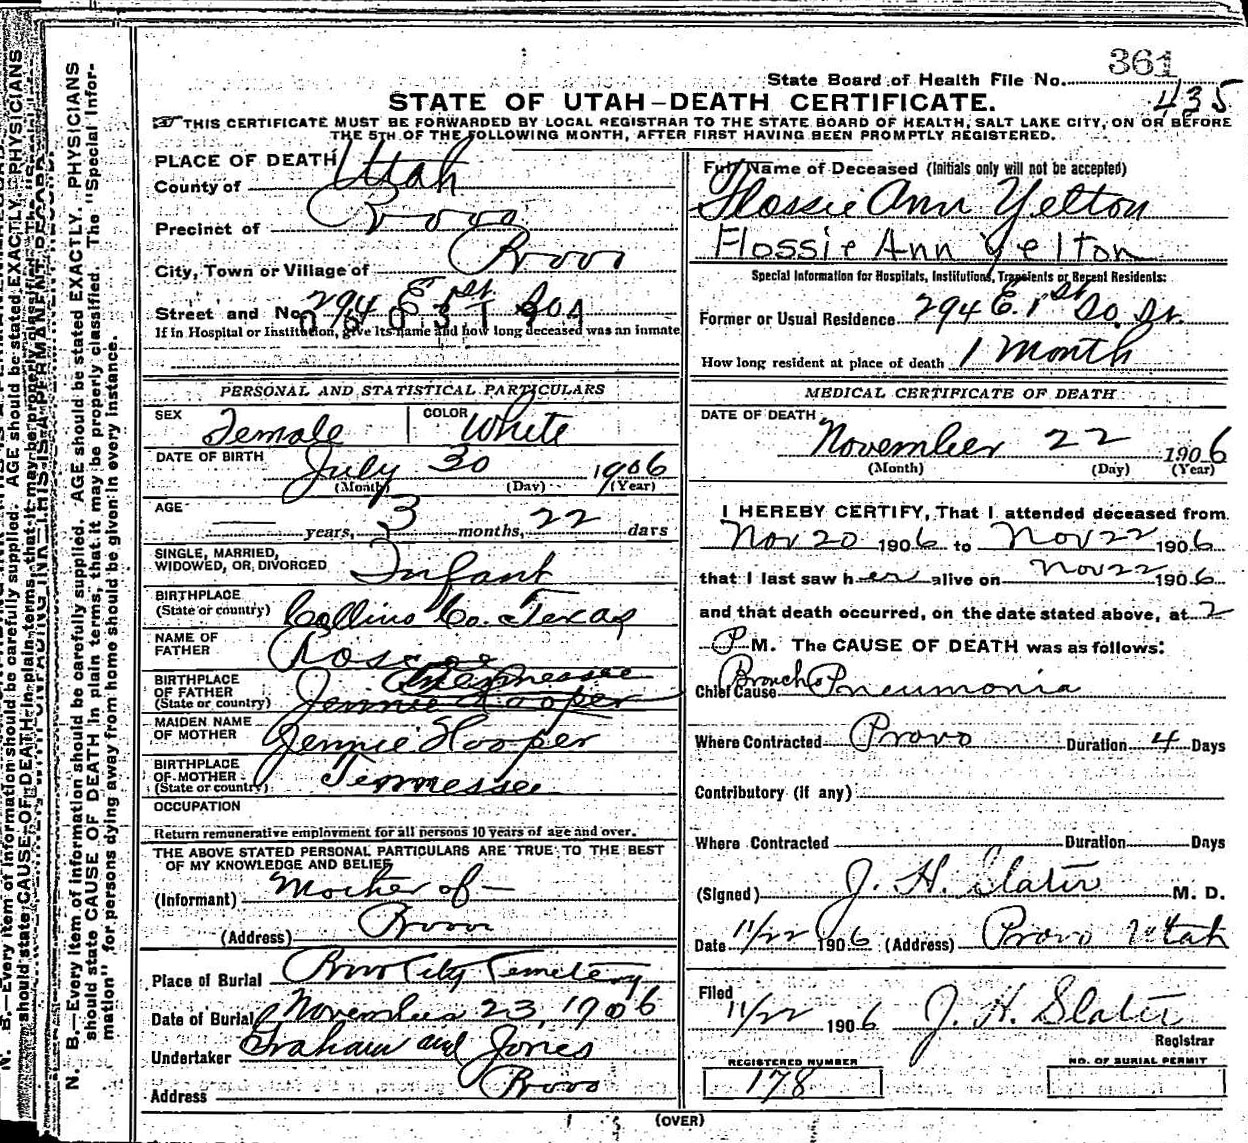 361
State Board of Health File No. 435
STATE OF UTAH–DEATH CERTIFICATE.
THIS CERTIFICATE MUST BE FORWARDED BY LOCAL REGISTRAR TO THE STATE BOARD OF HEALTH, SALT LAKE CITY, ON OR BEFORE
THE 5TH OF THE FOLLOWING MONTH, AFTER FIRST HAVING BEEN PROMPTLY REGISTERED.
PLACE OF DEATH
County of Utah
Precinct of Provo
City, Town or Village of Provo
Street and No. 294 E 1st So.
If in Hospital or Institution, give its name and how long deceased was an inmate
Full Name of Deceased (Initials only will not be accepted)
Flossie Ann Yelton
Flossie Ann Yelton
Special Information for Hospitals, Institutions, Transients or Recent Residents:
Former or Usual Residence 294 E. 1st So. St.
How long resident at place of death 1 Month
PERSONAL AND STATISTICAL PARTICULARS
SEX Female COLOR White
DATE OF BIRTH July 30 1906
(Month) (Day) (Year)
AGE
— years, 3 months, 22 days
SINGLE, MARRIED,
WIDOWED, OR DIVORCED Infant
BIRTHPLACE
(State or country) Collins Co. Texas
NAME OF
FATHER Roscoe
BIRTHPLACE
OF FATHER Tennessee
(State or country) Jennie Hooper
MAIDEN NAME
OF MOTHER Jennie Hooper
BIRTHPLACE
OF MOTHER Tennessee
(State or country)
OCCUPATION
Return remunerative employment for all persons 10 years of age and over.
THE ABOVE STATED PERSONAL PARTICULARS ARE TRUE TO THE BEST
OF MY KNOWLEDGE AND BELIEF
(Informant) Mother of —
(Address) Provo
Place of Burial Provo City Cemetery
Date of Burial November 23, 1906
Undertaker Graham and Jones
Address Provo
MEDICAL CERTIFICATE OF DEATH
DATE OF DEATH
November 22 1906
(Month) (Day) (Year)
I HEREBY CERTIFY, That I attended deceased from
Nov 20 1906 to Nov 22 1906
that I last saw her alive on Nov 22 1906
and that death occurred, on the date stated above, at 2
P M. The CAUSE OF DEATH was as follows:
Chief Cause Broncho Pneumonia
Where Contracted Provo Duration 4 Days
Contributory (if any)
Where Contracted Duration Days
(Signed) J. H. Slater M. D.
Date 11/22 1906 (Address) Provo Utah
Filed
11/22 1906 J. H. Slater
Registrar
REGISTERED NUMBER
178
NO. OF BURIAL PERMIT
(OVER)
N. B.—Every item of information should be carefully supplied. AGE should be stated EXACTLY. PHYSICIANS
should state CAUSE OF DEATH in plain terms, that it may be properly classified. The "Special Infor-
mation" for persons dying away from home should be given in every instance.